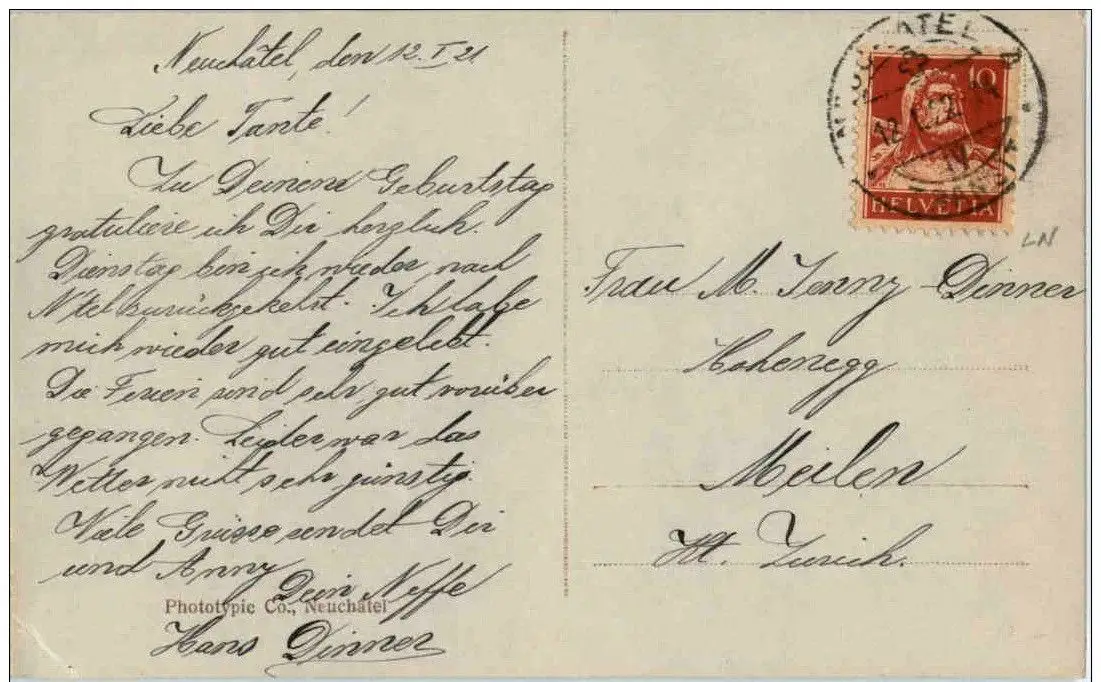 Neuchâtel, den 12. I 21
Liebe Tante!
Zu Deinem Geburtstag
gratuliere ich Dir herzlich.
Dienstag bin ich wieder nach
N'tel zurückgekehrt. Ich habe
mich wieder gut eingelebt.
Die Ferien sind sehr gut vorüber
gegangen. Leider war das
Wetter nicht sehr günstig.
Viele Grüsse sendet Dir
und Anny
Dein Neffe
Phototypie Co., Neuchâtel
Hans Dinner
10
HELVETIA
LN
Frau M. Jenny-Dinner
Hohenegg
Meilen
Kt. Zürich.